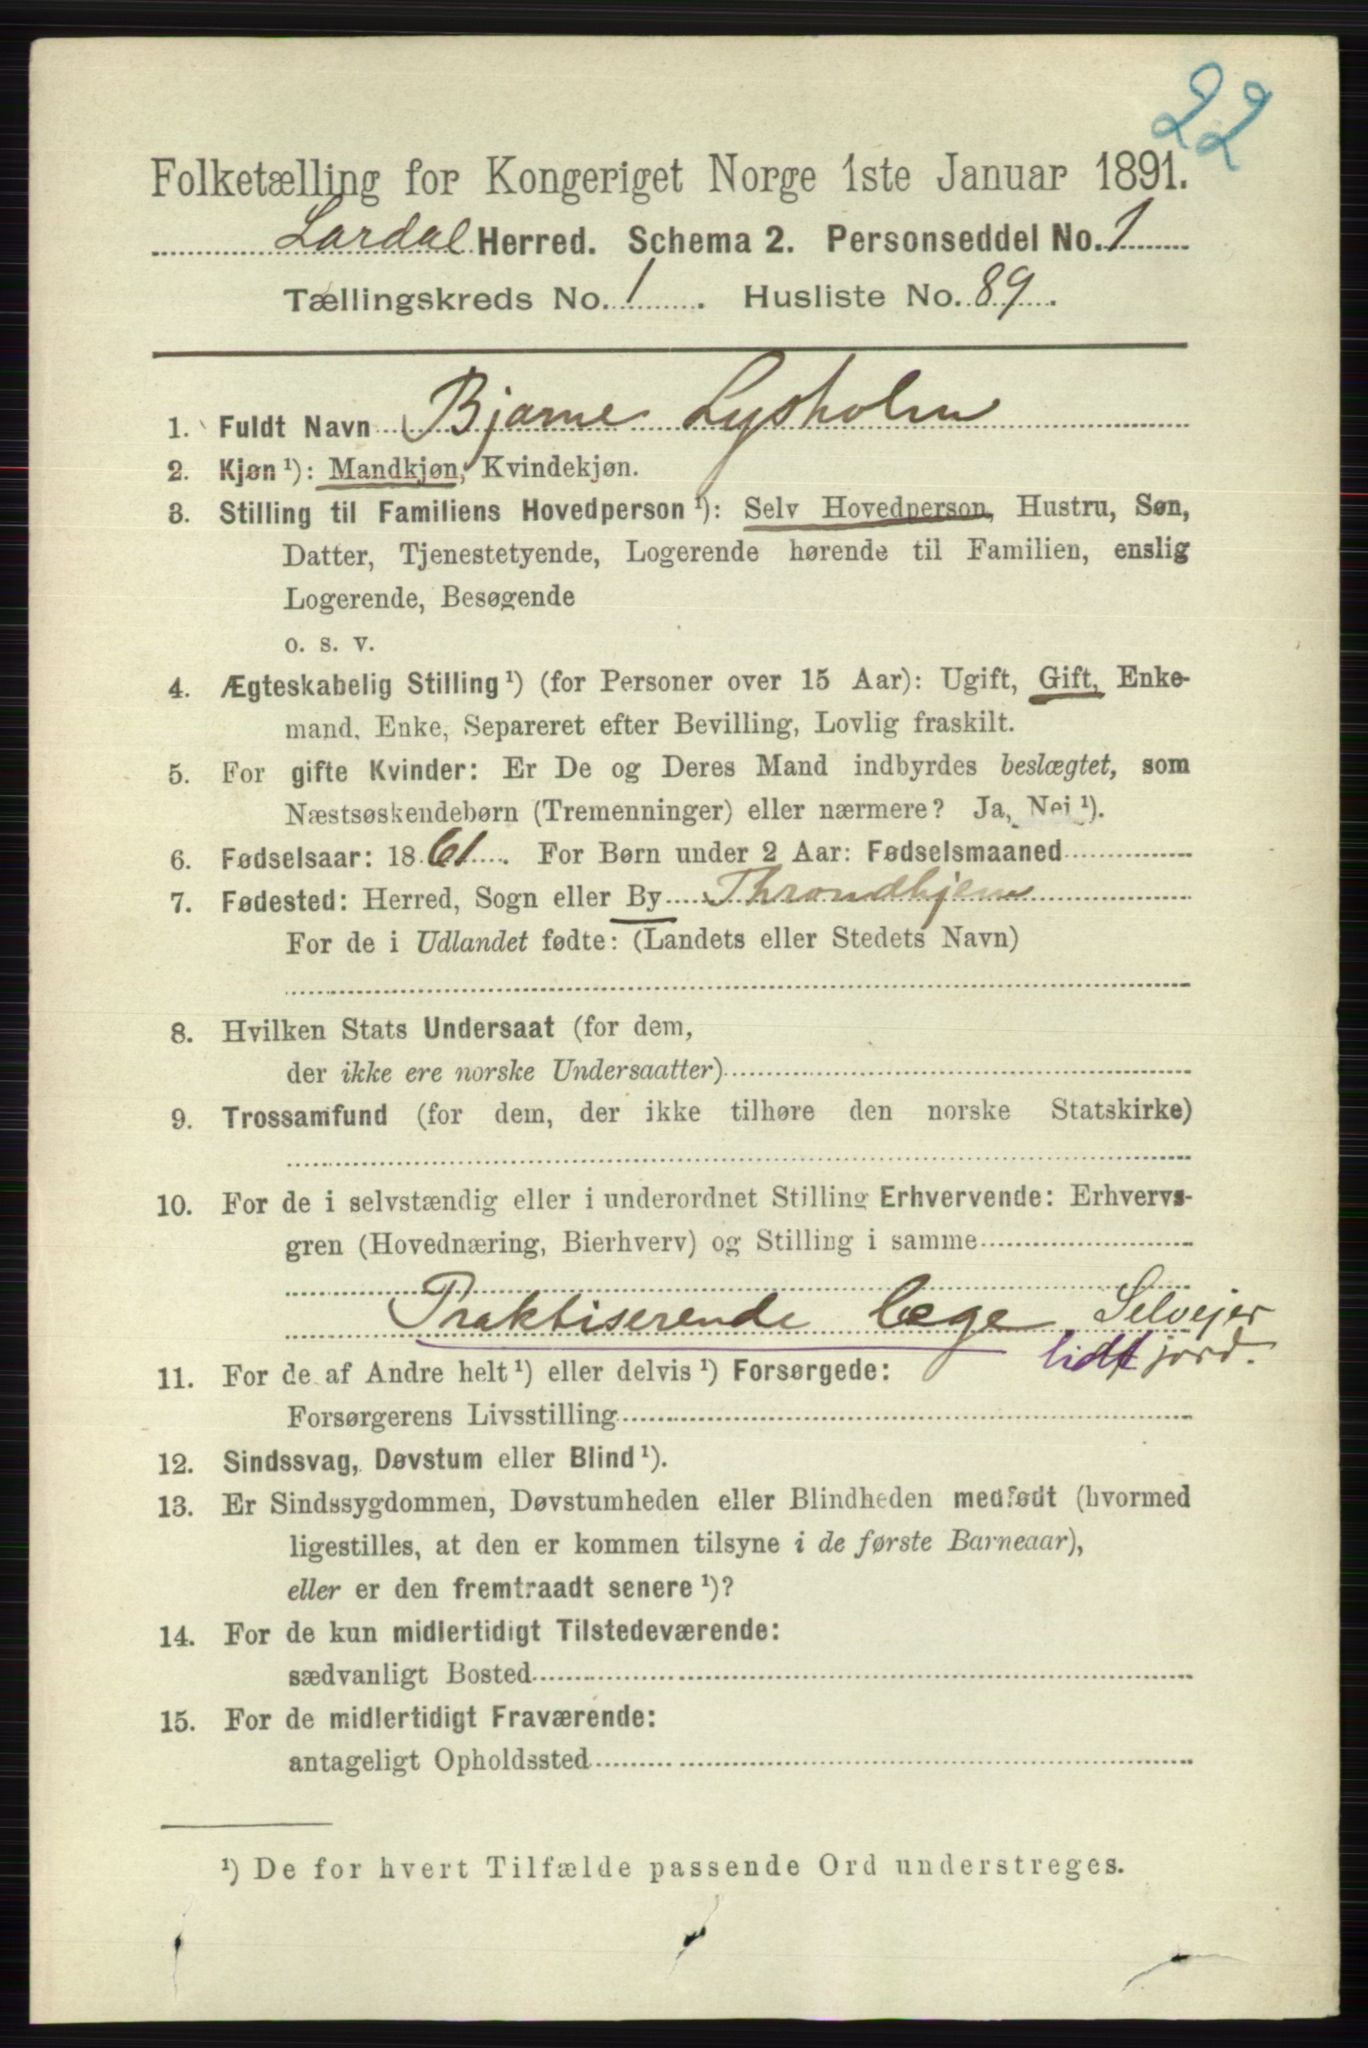 22
Folketælling for Kongeriget Norge 1ste Januar 1891.
Lardal Herred. Schema 2. Personseddel No. 1
Tællingskreds No. 1. Husliste No. 89.
1. Fuldt Navn Bjarne Lysholm
2. Kjøn ¹): Mandkjøn, Kvindekjøn.
3. Stilling til Familiens Hovedperson ¹): Selv Hovedperson, Hustru, Søn,
Datter, Tjenestetyende, Logerende hørende til Familien, enslig
Logerende, Besøgende
o. s. v.
4. Ægteskabelig Stilling ¹) (for Personer over 15 Aar): Ugift, Gift, Enke-
mand, Enke, Separeret efter Bevilling, Lovlig fraskilt.
5. For gifte Kvinder: Er De og Deres Mand indbyrdes beslægtet, som
Næstsøskendebørn (Tremenninger) eller nærmere? Ja, Nei ¹).
6. Fødselsaar: 1861. For Børn under 2 Aar: Fødselsmaaned
7. Fødested: Herred, Sogn eller By Throndhjem
For de i Udlandet fødte: (Landets eller Stedets Navn)
8. Hvilken Stats Undersaat (for dem,
der ikke ere norske Undersaatter)
9. Trossamfund (for dem, der ikke tilhøre den norske Statskirke)
10. For de i selvstændig eller i underordnet Stilling Erhvervende: Erhvervs-
gren (Hovednæring, Bierhverv) og Stilling i samme
Praktiserende læge Selvejer
lidt jord.
11. For de af Andre helt ¹) eller delvis ¹) Forsørgede:
Forsørgerens Livsstilling
12. Sindssvag, Døvstum eller Blind ¹).
13. Er Sindssygdommen, Døvstumheden eller Blindheden medfødt (hvormed
ligestilles, at den er kommen tilsyne i de første Barneaar),
eller er den fremtraadt senere ¹)?
14. For de kun midlertidigt Tilstedeværende:
sædvanligt Bosted
15. For de midlertidigt Fraværende:
antageligt Opholdssted
¹) De for hvert Tilfælde passende Ord understreges.